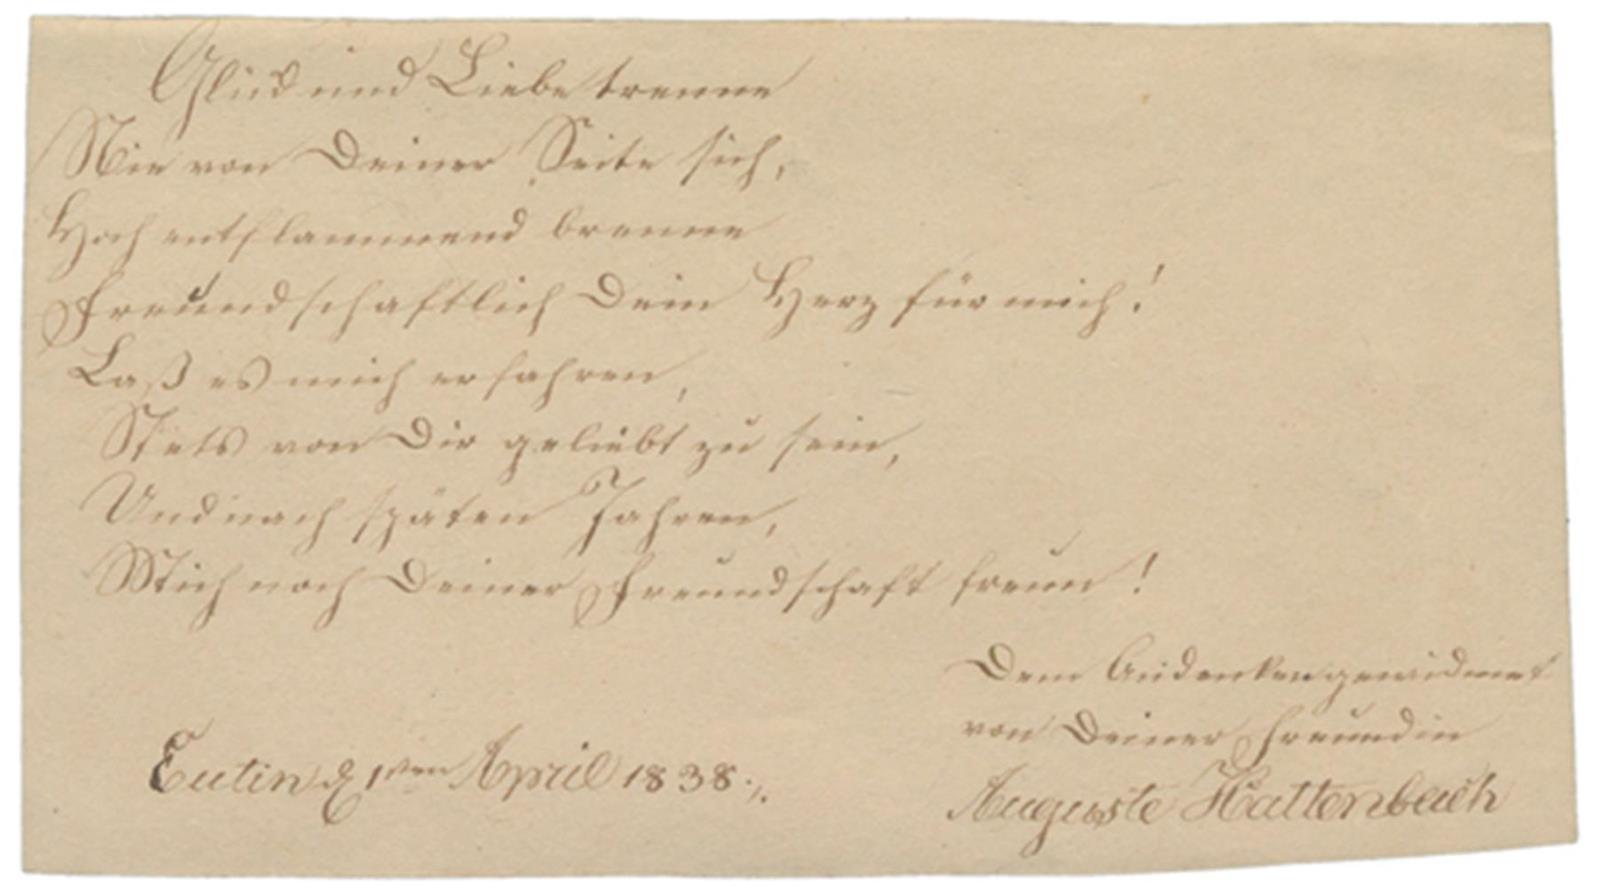 Glück und Liebe trenne
Nie von Deiner Seite sich,
Hoch entflammend brenne
Freundschaftlich Dein Herz für mich!
Laß es mich erfahren,
Stets von Dir geliebt zu sein,
Und nach späten Jahren,
Mich noch Deiner Freundschaft freun!
Dem Andenken gewidmet
von Deiner Freundin
Eutin d 1ten April 1838.
Auguste Hattenbach